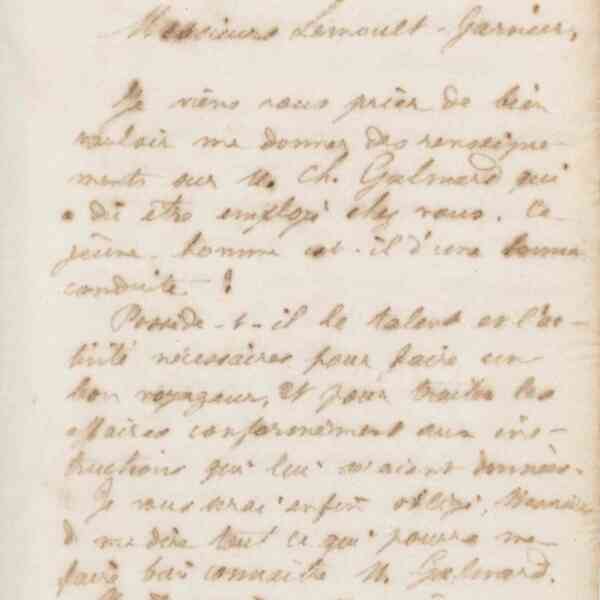 Messieurs Lemoult-Garnier,
Je viens vous prier de bien
vouloir me donner des renseigne-
ments sur M. Ch. Galmard qui
a dû être employé chez vous. Ce
jeune homme est-il d'une bonne
conduite ?
Possède-t-il le talent et l'ac-
tivité nécessaires pour faire un
bon voyageur, et pour traiter les
affaires conformément aux ins-
tructions qui lui seraient données.
Je vous serai enfin obligé, Messieurs
de me dire tout ce qui pourra me
faire bien connaître M. Galmard.